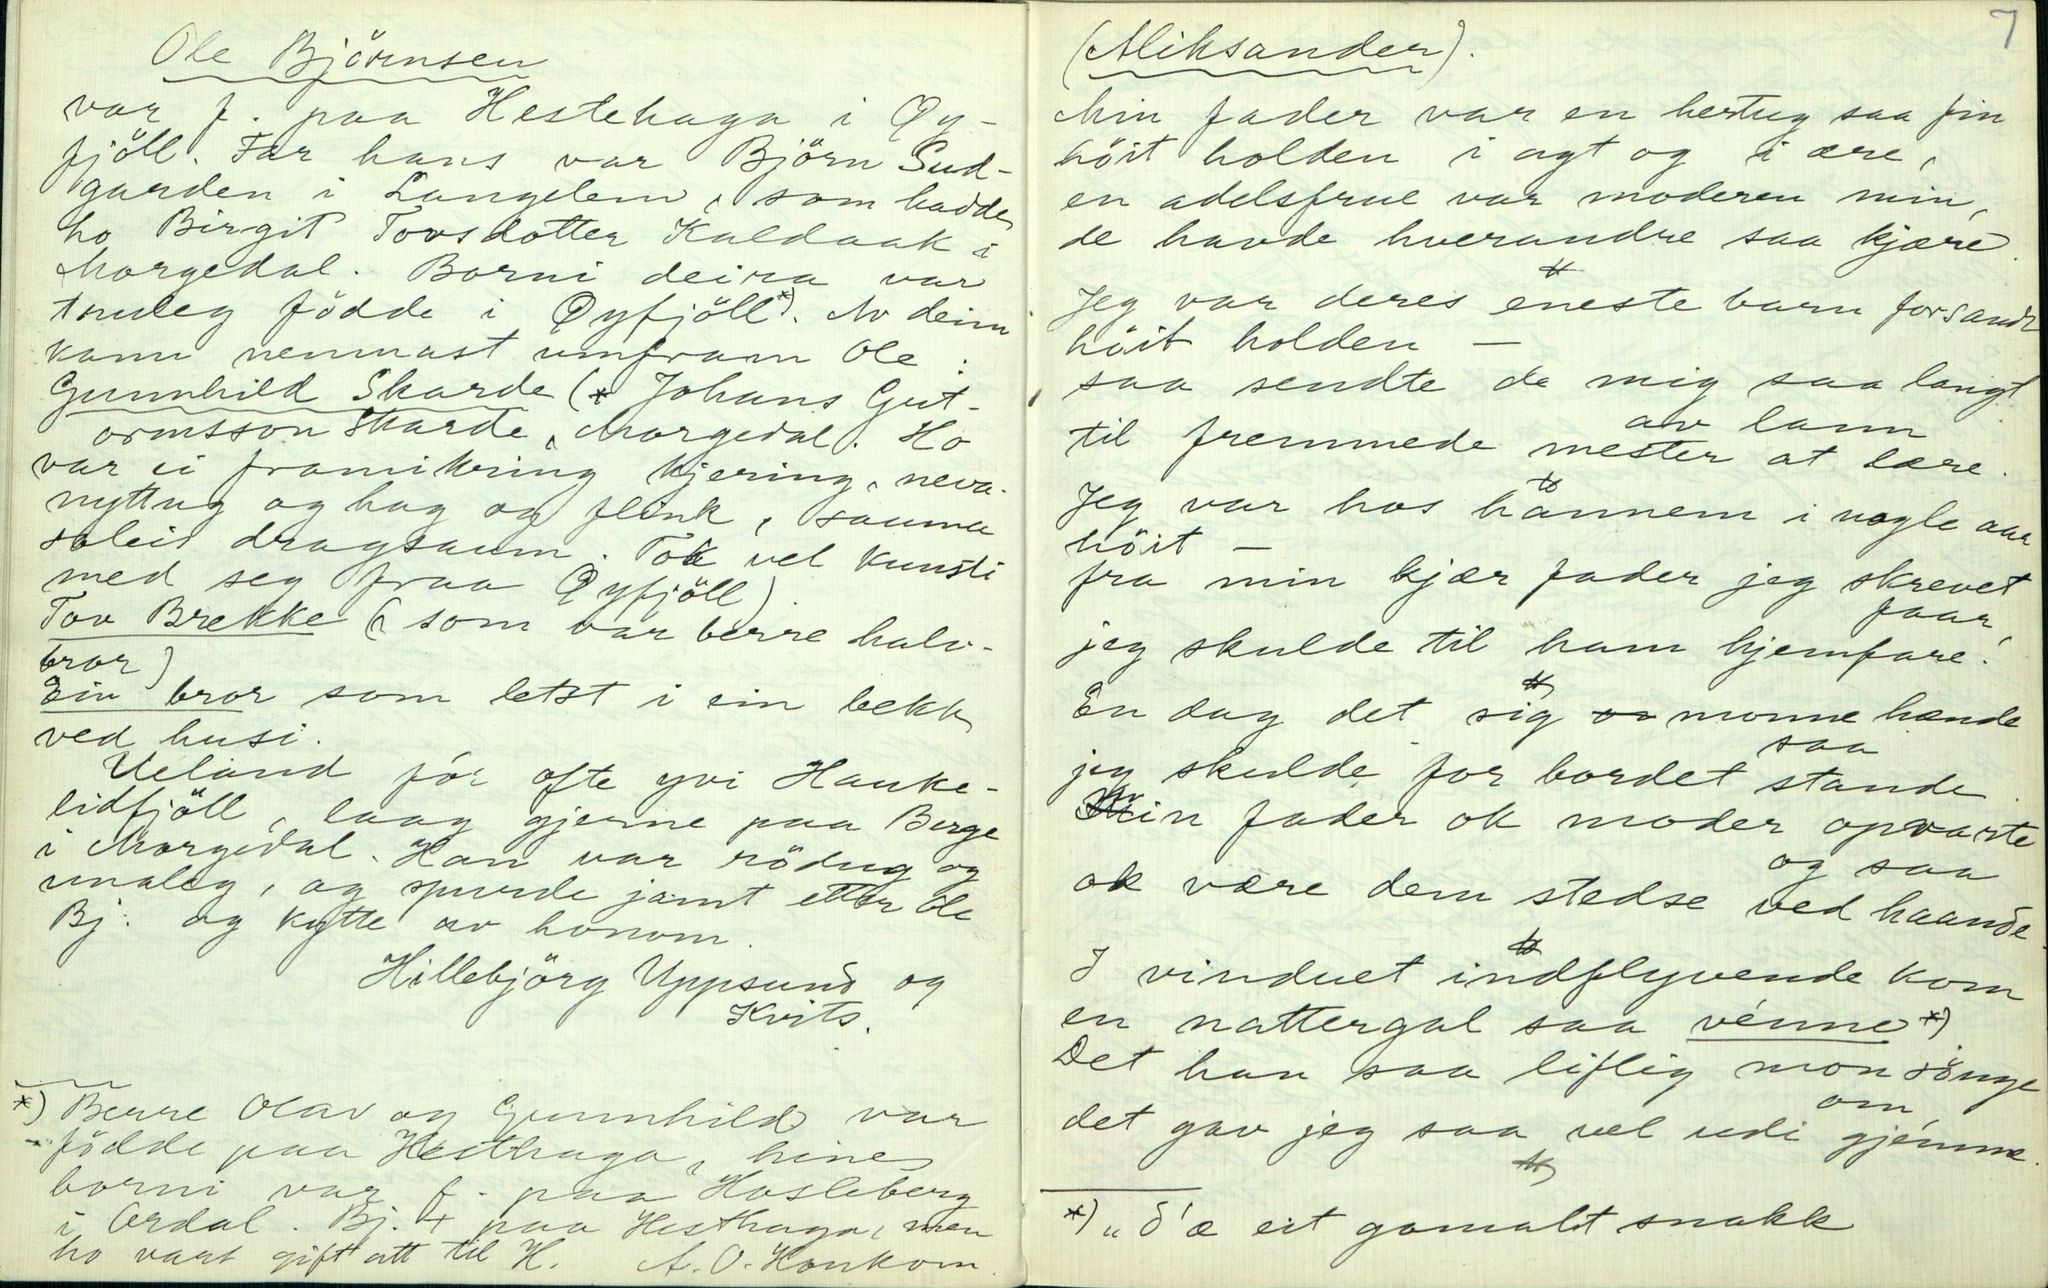 Ole Björnsen
var f. paa Hestehaga i Öy-
fjöll. Far hans var Björn Sud-
garden i Langelem, som hadde
ho Birgit Tovsdotter Kaldaak i
Morgedal. Borni deira var
truleg födde i Öyfjöll*). Av deim
kann nemnast umfram Ole:
Gunnhild Skarde (* Johans Gut-
ormsson Skarde, Morgedal. Ho
var ei framikring kjering, neva-
nyttug og hag og flink, sauma
soleis dragsaum. Tok vel kunsti
med seg fraa Öyfjöll)
Tov Brekke (som var berre halv-
bror)
Ein bror som letst i ein bekk
ved husi.
Ueland fór ofte yvi Hauke-
lidfjöll, laag gjerne paa Berge
i Morgedal. Han var rödug og
unaleg, og spurde jamt etter Ole
Bj. og kytte av honom.
Hillebjörg Uppsund og
Kvits.
*) Berre Olav og Gunnhild var
födde paa Hesthaga, hine
borni var f. paa Hasleberg
i Ordal. Bj. + paa Hesthaga, men
ho vart gift att til H. A. O. Honkom.
7
(Aliksander).
Min fader var en hertug saa fin
höit holden i agt og i ære,
en adelsfrue var moderen min,
de havde hverandre saa kjære.
Jeg var deres eneste barn forsandt
höit holden —
saa sendte de mig saa langt
av lann
til fremmede mester at lære.
Jeg var hos hannem i nogle aar
höit —
fra min kjær fader jeg skrevet
faar,
jeg skulde til ham hjemfare.
En dag det sig monne hænde
saa
jeg skulde for bordet stande.
Min fader ok moder opvarte
og saa
ok være dem stedse ved haande.
I vinduet indflyvende kom
en nattergal saa vénne *)
Det han saa liflig mon sönge
om
det gav jeg saa vel udi gjémme.
*) „d'æ eit gamalt snakk